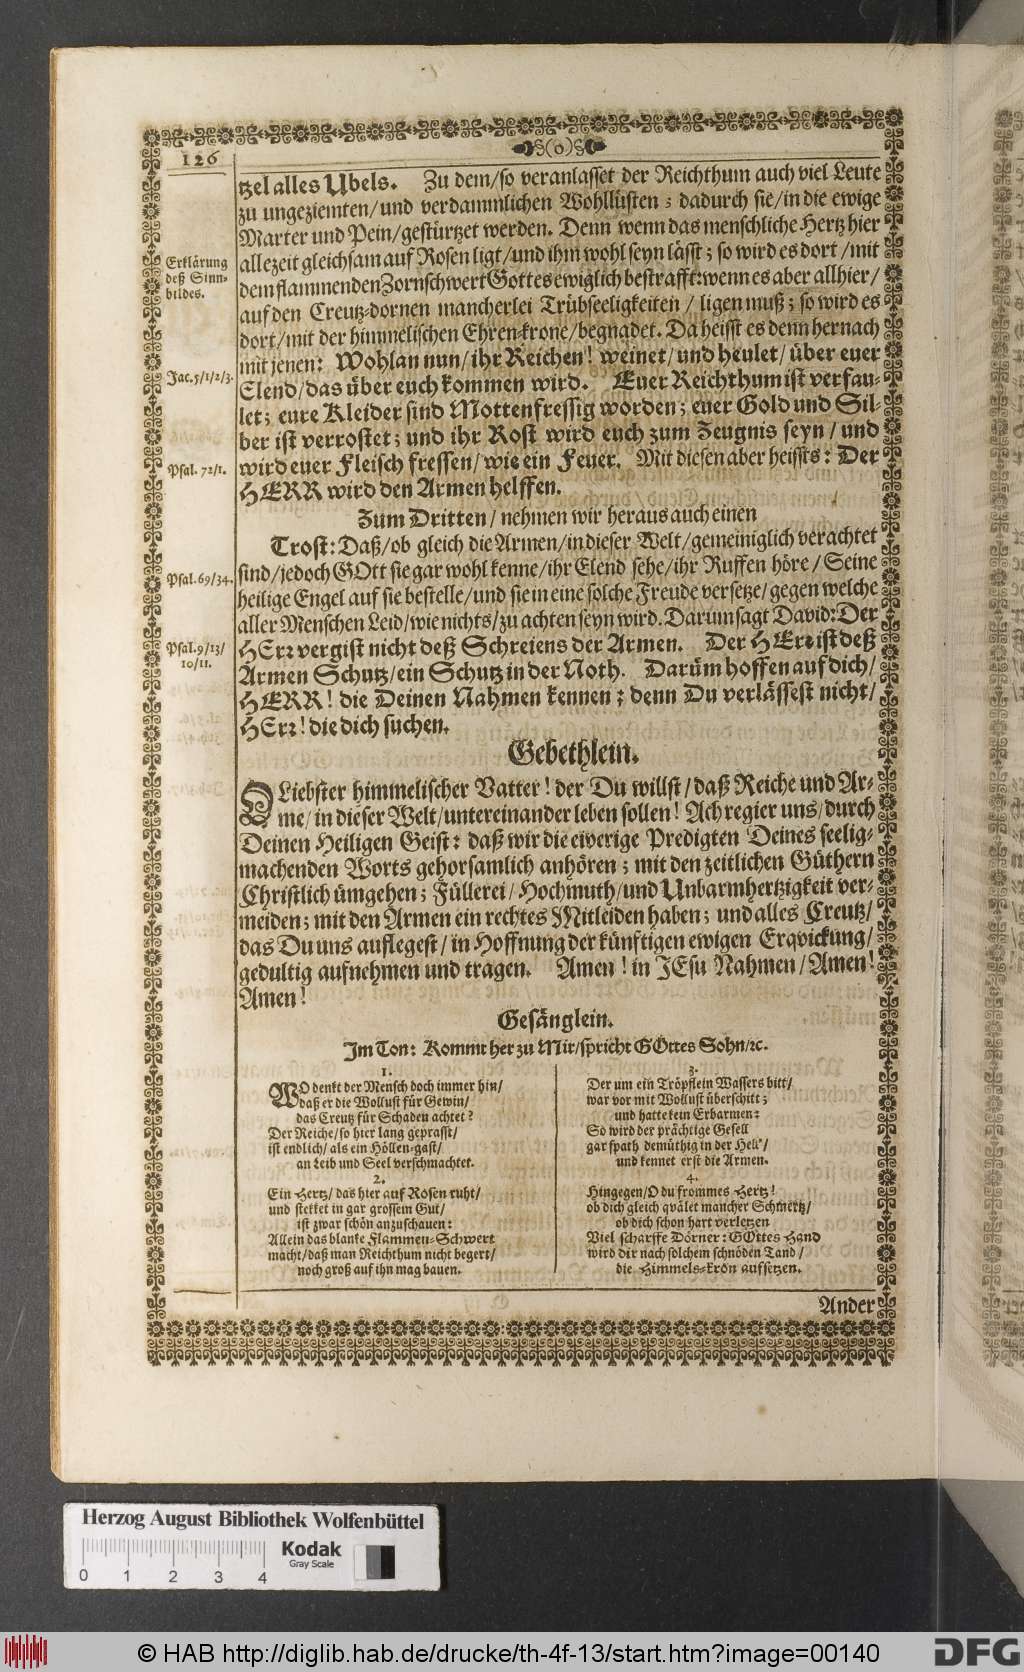 126
§(o)§
tzel alles Ubels. Zu dem/so veranlasset der Reichthum auch viel Leute
zu ungeziemten/und verdammlichen Wohllüsten; dadurch sie/in die ewige
Marter und Pein/gestürtzet werden. Denn wenn das menschliche Hertz hier
allezeit gleichsam auf Rosen ligt/und ihm wohl seyn lässt; so wird es dort/mit
dem flammenden Zornschwert Gottes ewiglich bestrafft: wenn es aber allhier/
auf den Creutz-dornen mancherlei Trübseeligkeiten/ ligen muß; so wird es
dort/mit der himmelischen Ehren-krone/begnadet. Da heisst es denn hernach
mit jenen: Wohlan nun/ihr Reichen! weinet/und heulet/über euer
Elend/das über euch kommen wird. Euer Reichthum ist verfau-
let; eure Kleider sind Mottenfressig worden; euer Gold und Sil-
ber ist verrostet; und ihr Rost wird euch zum Zeugnis seyn/und
wird euer Fleisch fressen/wie ein Feuer. Mit diesen aber heissts: Der
HERR wird den Armen helffen.
Erklärung
deß Sinn-
bildes.
Jac. 5/1/2/3.
Psal. 72/1.
Zum Dritten/nehmen wir heraus auch einen
Trost: Daß/ob gleich die Armen/in dieser Welt/gemeiniglich verachtet
sind/jedoch GOtt sie gar wohl kenne/ihr Elend sehe/ihr Ruffen höre/Seine
heilige Engel auf sie bestelle/und sie in eine solche Freude versetze/gegen welche
aller Menschen Leid/wie nichts/zu achten seyn wird. Darüm sagt David: Der
HErr vergist nicht deß Schreiens der Armen. Der HErr ist deß
Armen Schutz/ein Schutz in der Noth. Darüm hoffen auf dich/
HERR! die Deinen Nahmen kennen; denn Du verlässest nicht/
HErr! die dich suchen.
Psal. 69/34.
Psal. 9/13/
10/11.
Gebethlein.
O Liebster himmelischer Vatter! der Du willst/daß Reiche und Ar-
me/in dieser Welt/untereinander leben sollen! Ach regier uns/durch
Deinen Heiligen Geist: daß wir die eiverige Predigten Deines seelig-
machenden Worts gehorsamlich anhören; mit den zeitlichen Güthern
Christlich ümgehen; Füllerei/Hochmuth/und Unbarmhertzigkeit ver-
meiden; mit den Armen ein rechtes Mitleiden haben; und alles Creutz/
das Du uns auflegest/in Hoffnung der künftigen ewigen Erqvickung/
gedultig aufnehmen und tragen. Amen! in JEsu Nahmen/Amen!
Amen!
Gesänglein.
Im Ton: Kommt her zu Mir/spricht GOttes Sohn/ꝛc.
1.
WO denkt der Mensch doch immer hin/
daß er die Wollust für Gewin/
das Creutz für Schaden achtet?
Der Reiche/so hier lang geprasst/
ist endlich/als ein Höllen-gast/
an Leib und Seel verschmachtet.
2.
Ein Hertz/das hier auf Rosen ruht/
und stecket in gar grossem Gut/
ist zwar schön anzuschauen:
Allein das blanke Flammen-Schwert
macht/daß man Reichthum nicht begert/
noch groß auf ihn mag bauen.
3.
Der um ein Tröpflein Wassers bitt/
war vor mit Wollust überschitt;
und hatte kein Erbarmen:
So wird der prächtige Gesell
gar spath demüthig in der Hell'/
und kennet erst die Armen.
4.
Hingegen/O du frommes Hertz!
ob dich gleich qvälet mancher Schmertz/
ob dich schon hart verletzen
Viel scharffe Dörner: GOttes Hand
wird dir nach solchem schnöden Tand/
die Himmels-krön aufsetzen.
Ander
Herzog August Bibliothek Wolfenbüttel
Kodak
Gray Scale
0 1 2 3 4
© HAB http://diglib.hab.de/drucke/th-4f-13/start.htm?image=00140
DFG